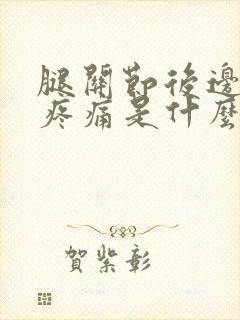 腿關節後邊
疼痛是什麼
賀紫彰